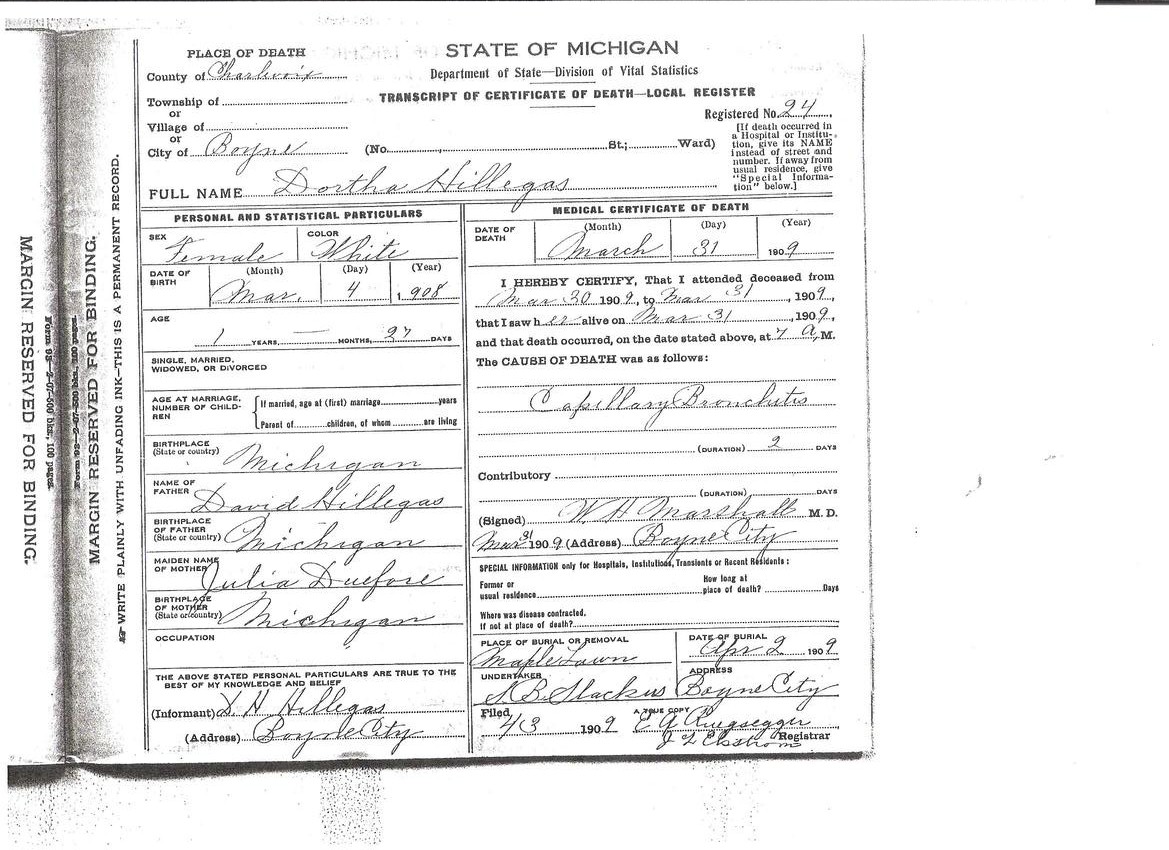 MARGIN RESERVED FOR BINDING.
Form 93—2-07-500 bks, 100 pages.
Form 93—2-07-500 bks, 100 pages.
MARGIN RESERVED FOR BINDING.
WRITE PLAINLY WITH UNFADING INK—THIS IS A PERMANENT RECORD.
PLACE OF DEATH
STATE OF MICHIGAN
County of Charlevoix
Department of State—Division of Vital Statistics
TRANSCRIPT OF CERTIFICATE OF DEATH—LOCAL REGISTER
Township of
or
Registered No. 24
Village of
or
City of Boyne (No. St.; Ward)
[If death occurred in
a Hospital or Institu-
tion, give its NAME
instead of street and
number. If away from
usual residence, give
"Special Informa-
tion" below.]
FULL NAME Dortha Hillegas
PERSONAL AND STATISTICAL PARTICULARS
SEX Female
COLOR White
DATE OF
BIRTH
(Month) (Day) (Year)
Mar. 4 1908
AGE
1 YEARS, — MONTHS, 27 DAYS
SINGLE, MARRIED,
WIDOWED, OR DIVORCED
AGE AT MARRIAGE,
NUMBER OF CHILD-
REN
If married, age at (first) marriage years
Parent of children, of whom are living
BIRTHPLACE
(State or country) Michigan
NAME OF
FATHER David Hillegas
BIRTHPLACE
OF FATHER
(State or country) Michigan
MAIDEN NAME
OF MOTHER Julia
BIRTHPLACE
OF MOTHER
(State or country) Michigan
OCCUPATION
THE ABOVE STATED PERSONAL PARTICULARS ARE TRUE TO THE
BEST OF MY KNOWLEDGE AND BELIEF
(Informant) D. H Hillegas
(Address) Boyne City
MEDICAL CERTIFICATE OF DEATH
DATE OF
DEATH
(Month) (Day) (Year)
March 31 1909
I HEREBY CERTIFY, That I attended deceased from
Mar 30 1909, to Mar 31, 1909,
that I saw her alive on Mar 31, 1909,
and that death occurred, on the date stated above, at 7 A, M.
The CAUSE OF DEATH was as follows:
Capillary Bronchitis
(DURATION) 2 DAYS
Contributory
(DURATION) DAYS
(Signed) W H Marshall M. D.
Mar 31 1909 (Address) Boyne City
SPECIAL INFORMATION only for Hospitals, Institutions, Transients or Recent Residents:
Former or
usual residence
How long at
place of death? Days
Where was disease contracted,
if not at place of death?
PLACE OF BURIAL OR REMOVAL
Maple Lawn
DATE OF BURIAL
Apr 2 1909
UNDERTAKER
B. Stackus
ADDRESS
Boyne City
Filed 4/3 1909
A TRUE COPY
E A Ruegsegger
J L Ekstrom
Registrar